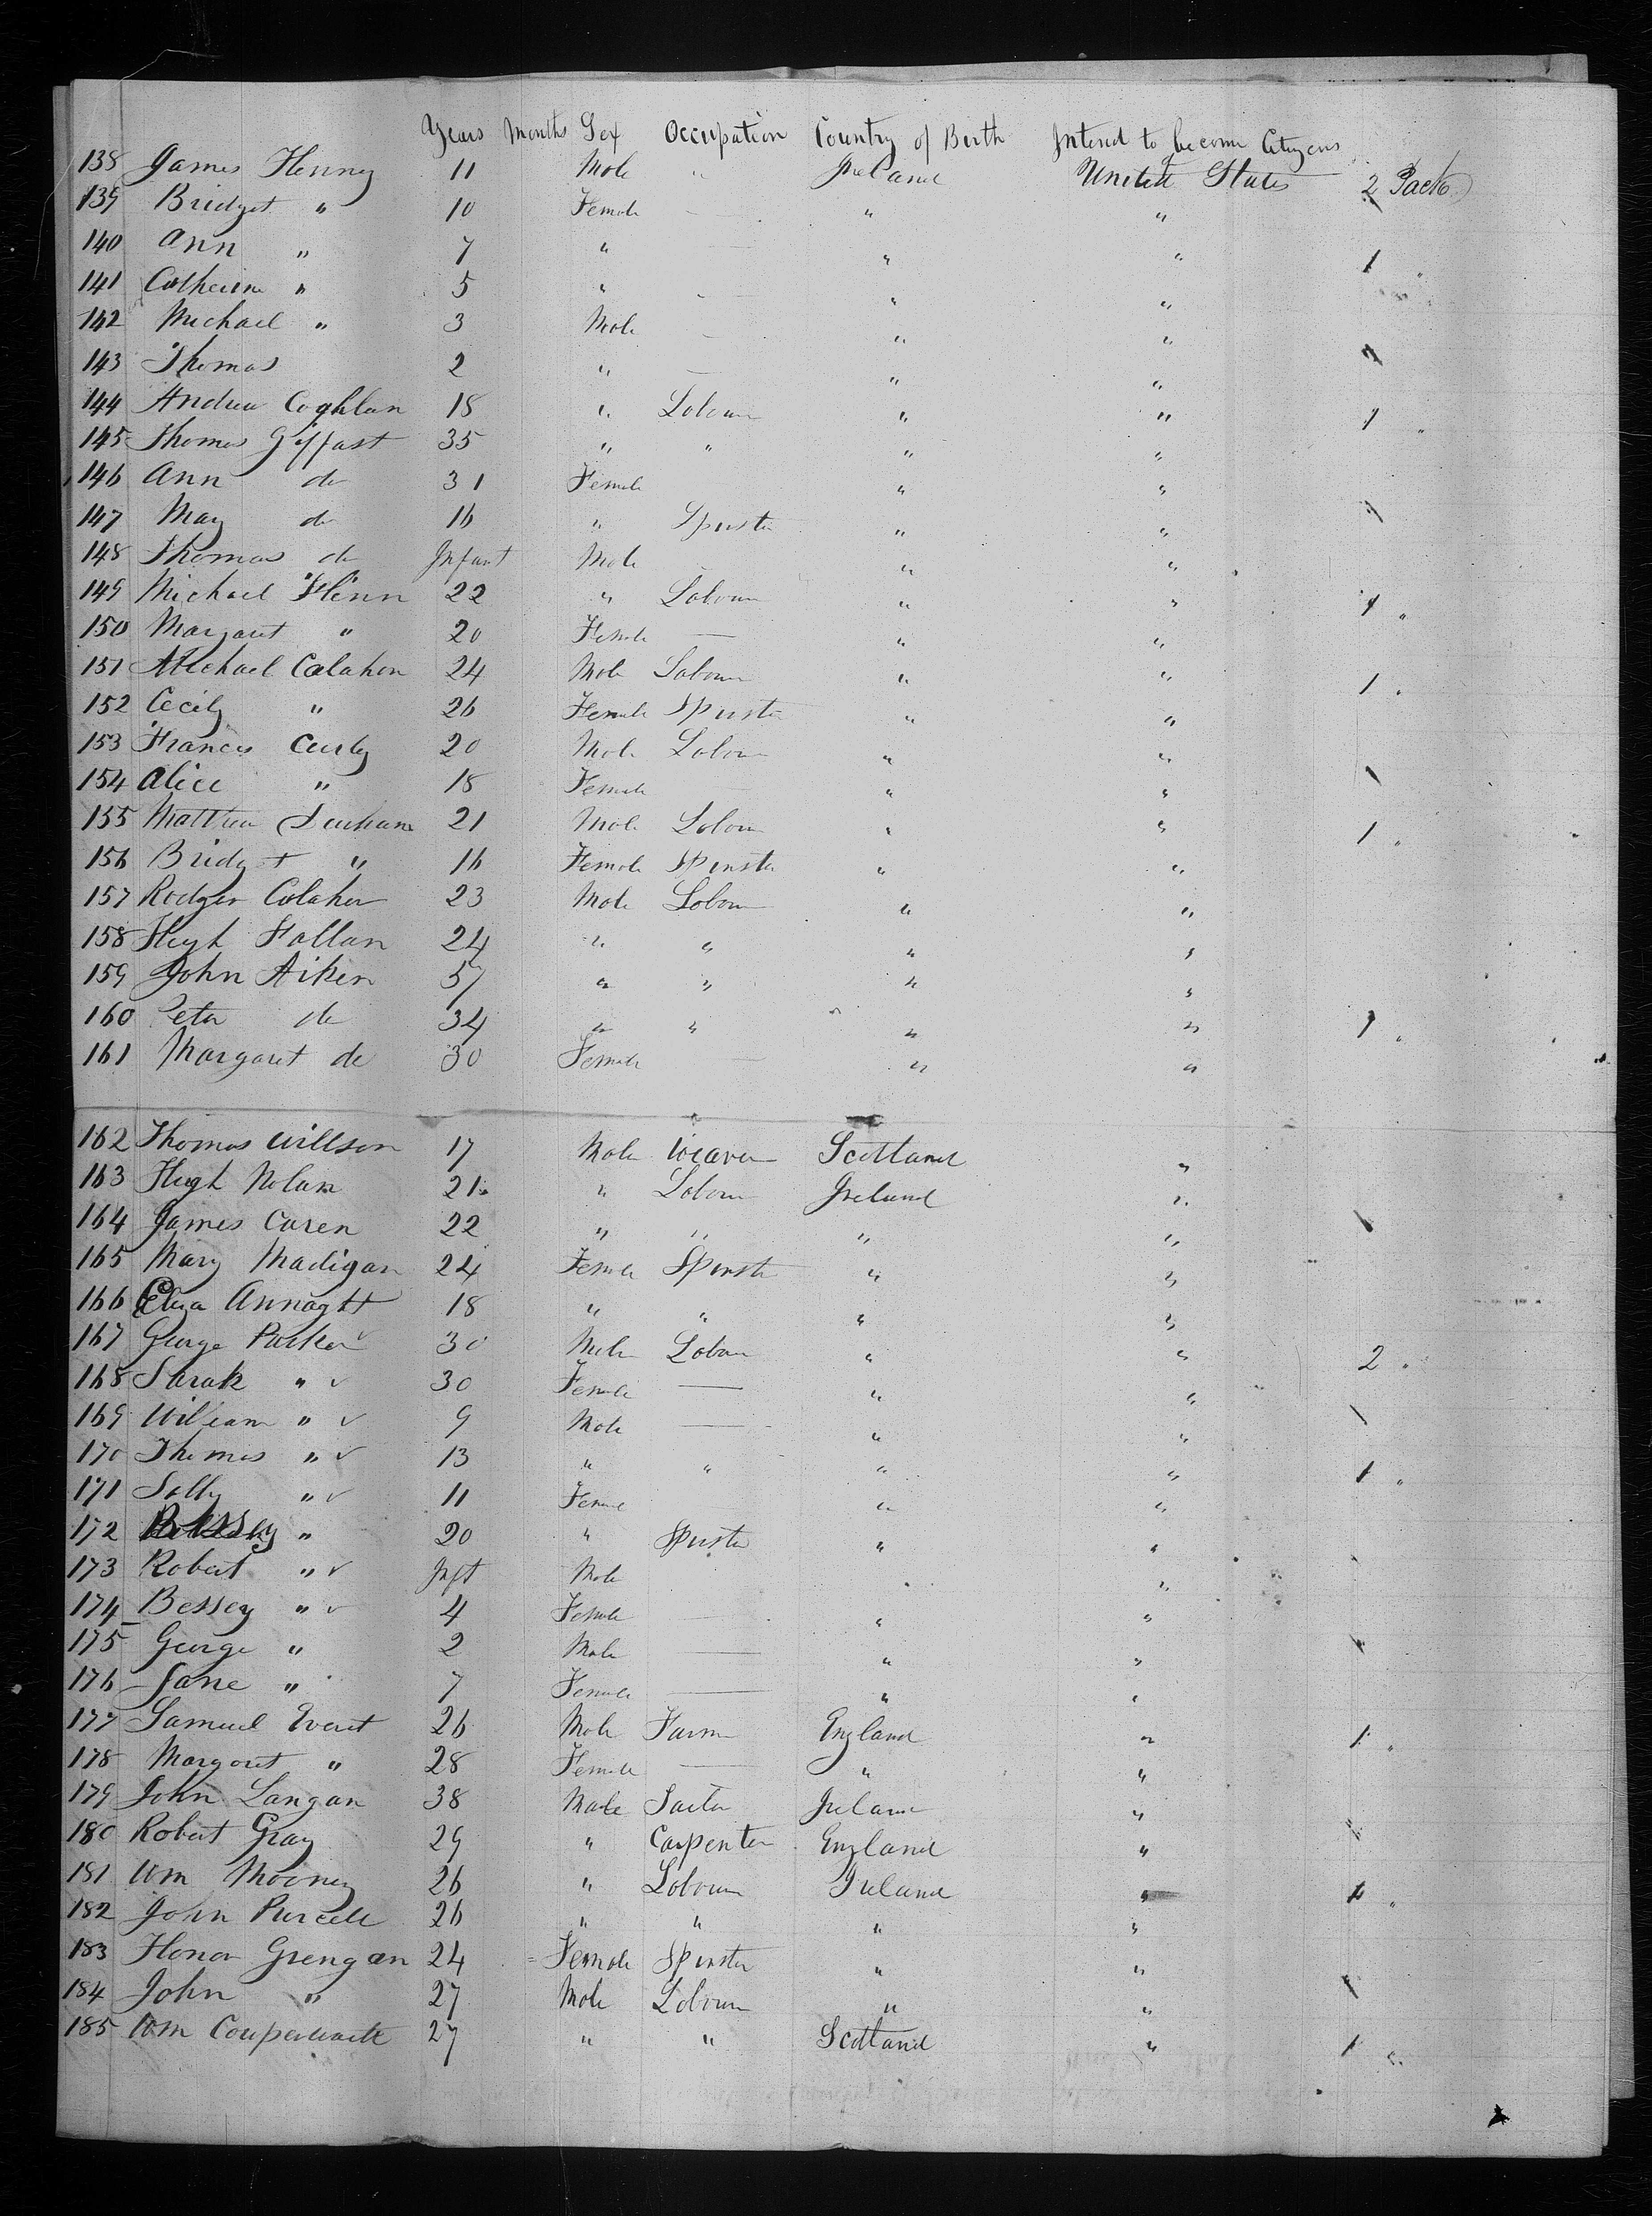 Years Months Sex Occupation Country of Birth Intend to become Citizens
138 James Henney 11 Male " Ireland United States 2 Packs
139 Bridget " 10 Female — " "
140 Ann " 7 " — " " 1 "
141 Catherine " 5 " — " "
142 Michael " 3 Male — " "
143 Thomas 2 " — " "
144 Andrew Coghlan 18 " Labour " " 1 "
145 Thomas Giffast 35 " " " "
146 Ann do 31 Female " "
147 May do 16 " Spinster " "
148 Thomas do Infant Male " "
149 Michael Flinn 22 " Labour " " 1 "
150 Margaret " 20 Female — " "
151 Michael Calahan 24 Male Labour " " 1 "
152 Cecily " 26 Female Spinster " "
153 Francis Curly 20 Male Labour " "
154 Alice " 18 Female — " "
155 Matthew 21 Male Labour " " 1 "
156 Bridget " 16 Female Spinster " "
157 Rodger Calahan 23 Male Labour " "
158 Hugh Fallan 24 " " " "
159 John Aiken 57 " " " "
160 Peter do 34 " " " " 1 "
161 Margaret do 30 Female — " "
162 Thomas Willson 17 Male Weaver Scotland "
163 Hugh Nolan 21 " Labour Ireland "
164 James Caren 22 " " " "
165 Mary Madigan 24 Female Spinster " "
166 Eliza Annaght 18 " " " "
167 George Parker 30 Male Labour " " 2 "
168 Sarah " 30 Female — " "
169 William " 9 Male — " "
170 Thomas " 13 " " " " 1 "
171 Sally " 11 Female " "
172 Bessy " 20 " Spinster " "
173 Robert " Inft Male "
174 Bessey " 4 Female — " "
175 George " 2 Male — " "
176 Jane " 7 Female — " "
177 Samuel Everet 26 Male Farm England " 1 "
178 Margaret " 28 Female — " "
179 John Langan 38 Male Ireland "
180 Robert Gray 29 " Carpenter England "
181 Wm Mooney 26 " Labour Ireland " 1 "
182 John Purcell 26 " " " "
183 Honor Grengan 24 Female Spinster " "
184 John " 27 Male Labour " "
185 Wm Couperwaite 27 " " Scotland " 1 "